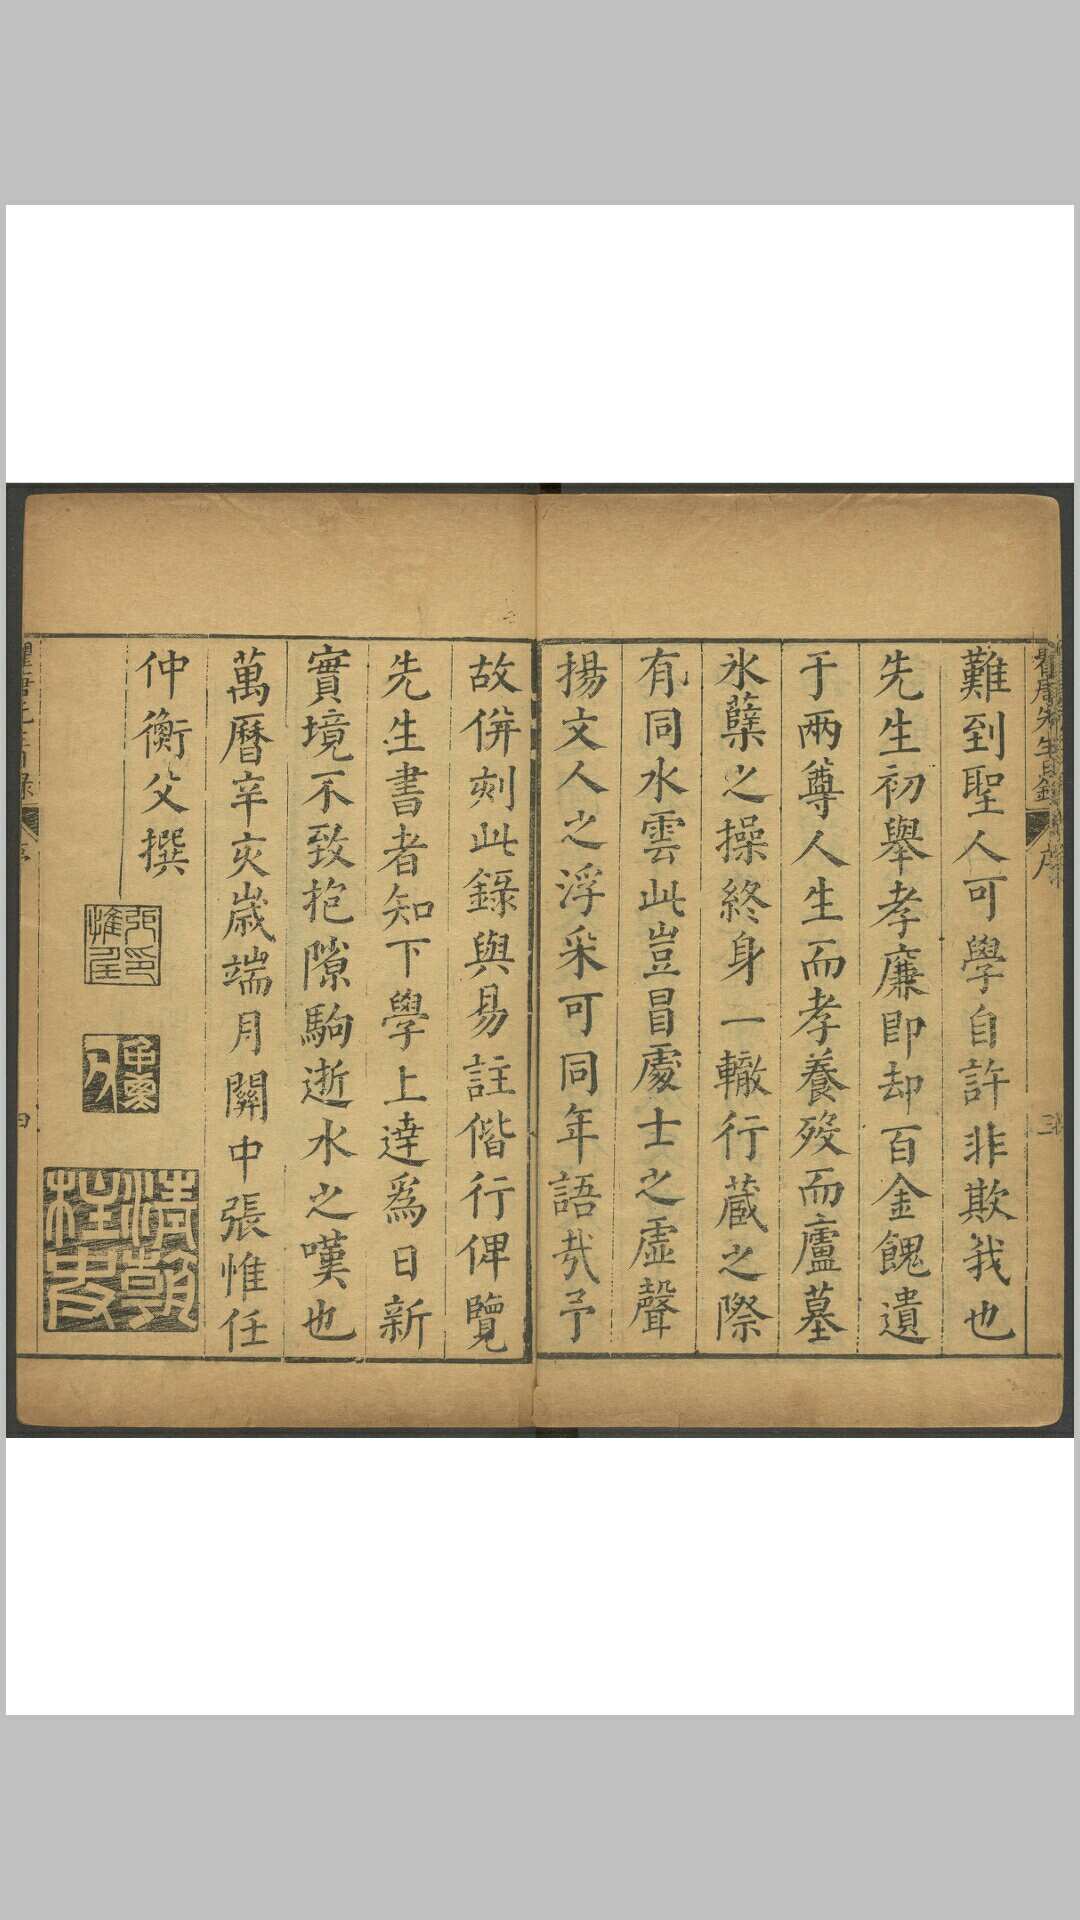 瞿唐先生日錄
序
三
難到聖人可學自許非欺我也
先生初舉孝廉卽却百金餽遺
于兩尊人生而孝養歿而廬墓
氷蘖之操終身一轍行藏之際
有同水雲此豈冒處士之虛聲
揚文人之浮采可同年語哉予
故併刻此錄與易註偕行俾覽
先生書者知下學上達爲日新
實境不致抱隙駒逝水之嘆也
萬曆辛亥歲端月關中張惟任
仲衡父撰
張惟任印
清朝柱史
四